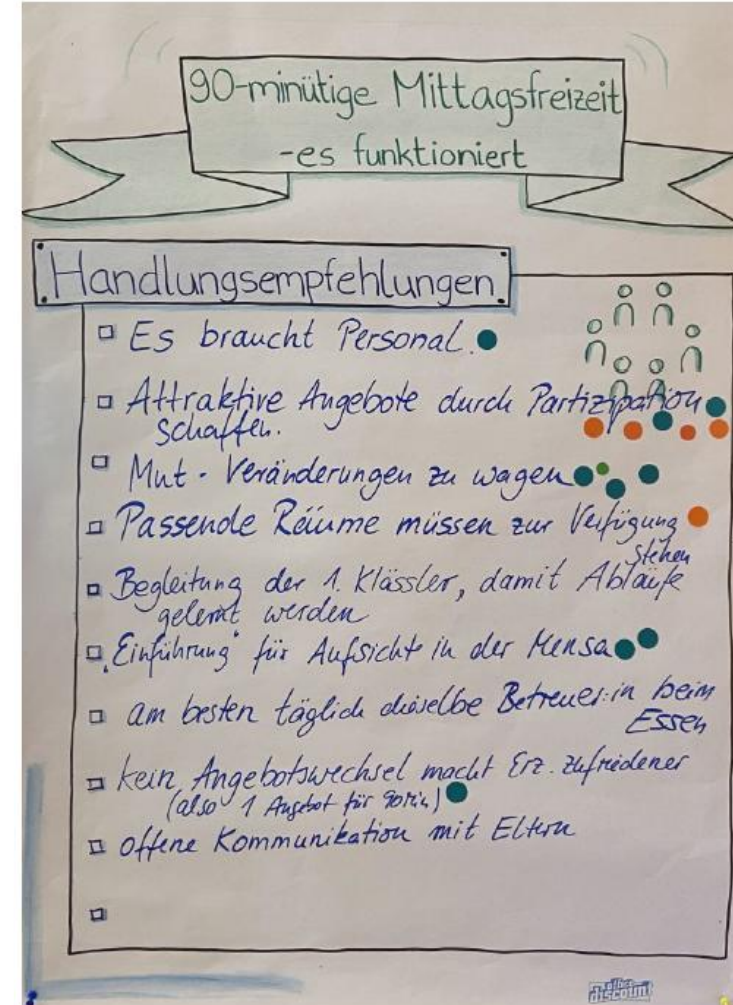 90-minütige Mittagsfreizeit
-es funktioniert
Handlungsempfehlungen
Es braucht Personal.
Attraktive Angebote durch Partizipation
schaffen.
Mut - Veränderungen zu wagen
Passende Räume müssen zur Verfügung
stehen
Begleitung der 1. Klässler, damit Abläufe
gelernt werden
"Einführung" für Aufsicht in der Mensa
am besten täglich dieselbe Betreuer:in beim
Essen
kein Angebotswechsel macht Erz. zufriedener
(also 1 Angebot für 90min)
offene Kommunikation mit Eltern
office
discount